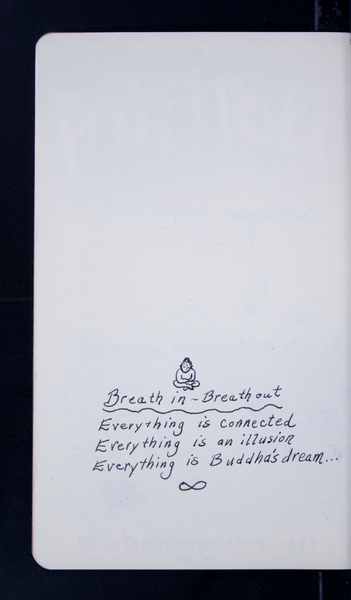 Breath in ~ Breath out
Everything is connected
Everything is an illusion
Everything is Buddha's dream...
∞